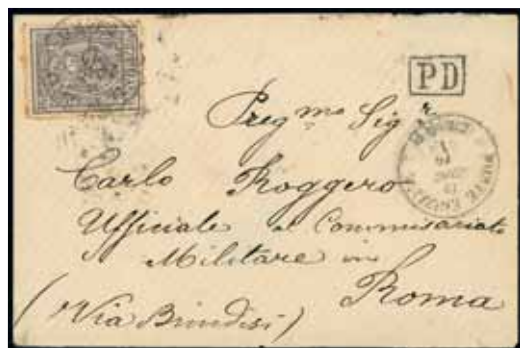 PD
Preg.mo Sig.r
Carlo Roggero
Ufficiale al Commissariato
Militare in
Roma
(Via Brindisi)